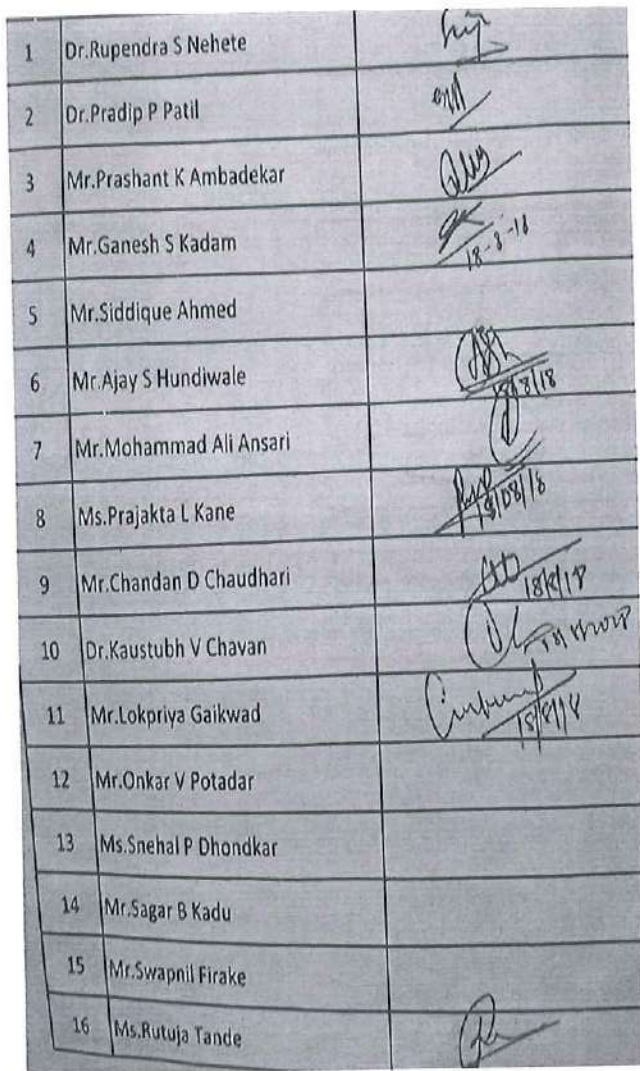 1 Dr.Rupendra S Nehete
2 Dr.Pradip P Patil
3 Mr.Prashant K Ambadekar
4 Mr.Ganesh S Kadam 18-8-18
5 Mr.Siddique Ahmed
6 Mr.Ajay S Hundiwale 18/8/18
7 Mr.Mohammad Ali Ansari
8 Ms.Prajakta L Kane 18/08/18
9 Mr.Chandan D Chaudhari 18/8/18
10 Dr.Kaustubh V Chavan
11 Mr.Lokpriya Gaikwad 18/8/18
12 Mr.Onkar V Potadar
13 Ms.Snehal P Dhondkar
14 Mr.Sagar B Kadu
15 Mr.Swapnil Firake
16 Ms.Rutuja Tande